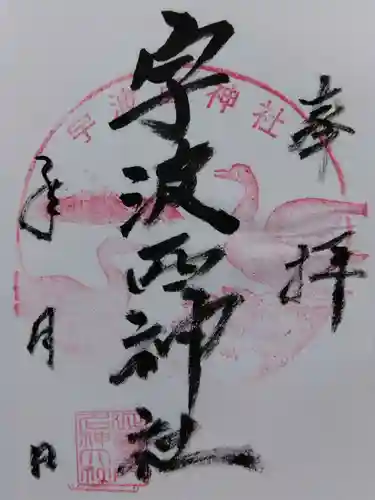 奉拝
宇波西神社
年月日
宇波西神社